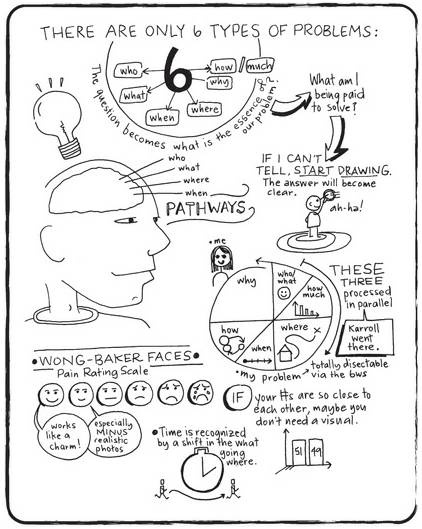 THERE ARE ONLY 6 TYPES OF PROBLEMS:
6
who
what
when
where
why
how / much
The question becomes what is the essence of our problem?
What am I
being paid
to solve?
IF I CAN'T
TELL, START DRAWING.
The answer will become
clear.
ah-ha!
who
what
where
when
PATHWAYS
•me
why
who/
what
how
much
where
when
how
x
•my problem → totally disectable
via the bws
THESE
THREE
processed
in parallel
Karroll
went
there.
•WONG-BAKER FACES•
Pain Rating Scale
works
like a
charm!
especially
MINUS
realistic
photos
IF your #s are so close to
each other, maybe you
don't need a visual.
51 49
•Time is recognized
by a shift in the what
going
where.